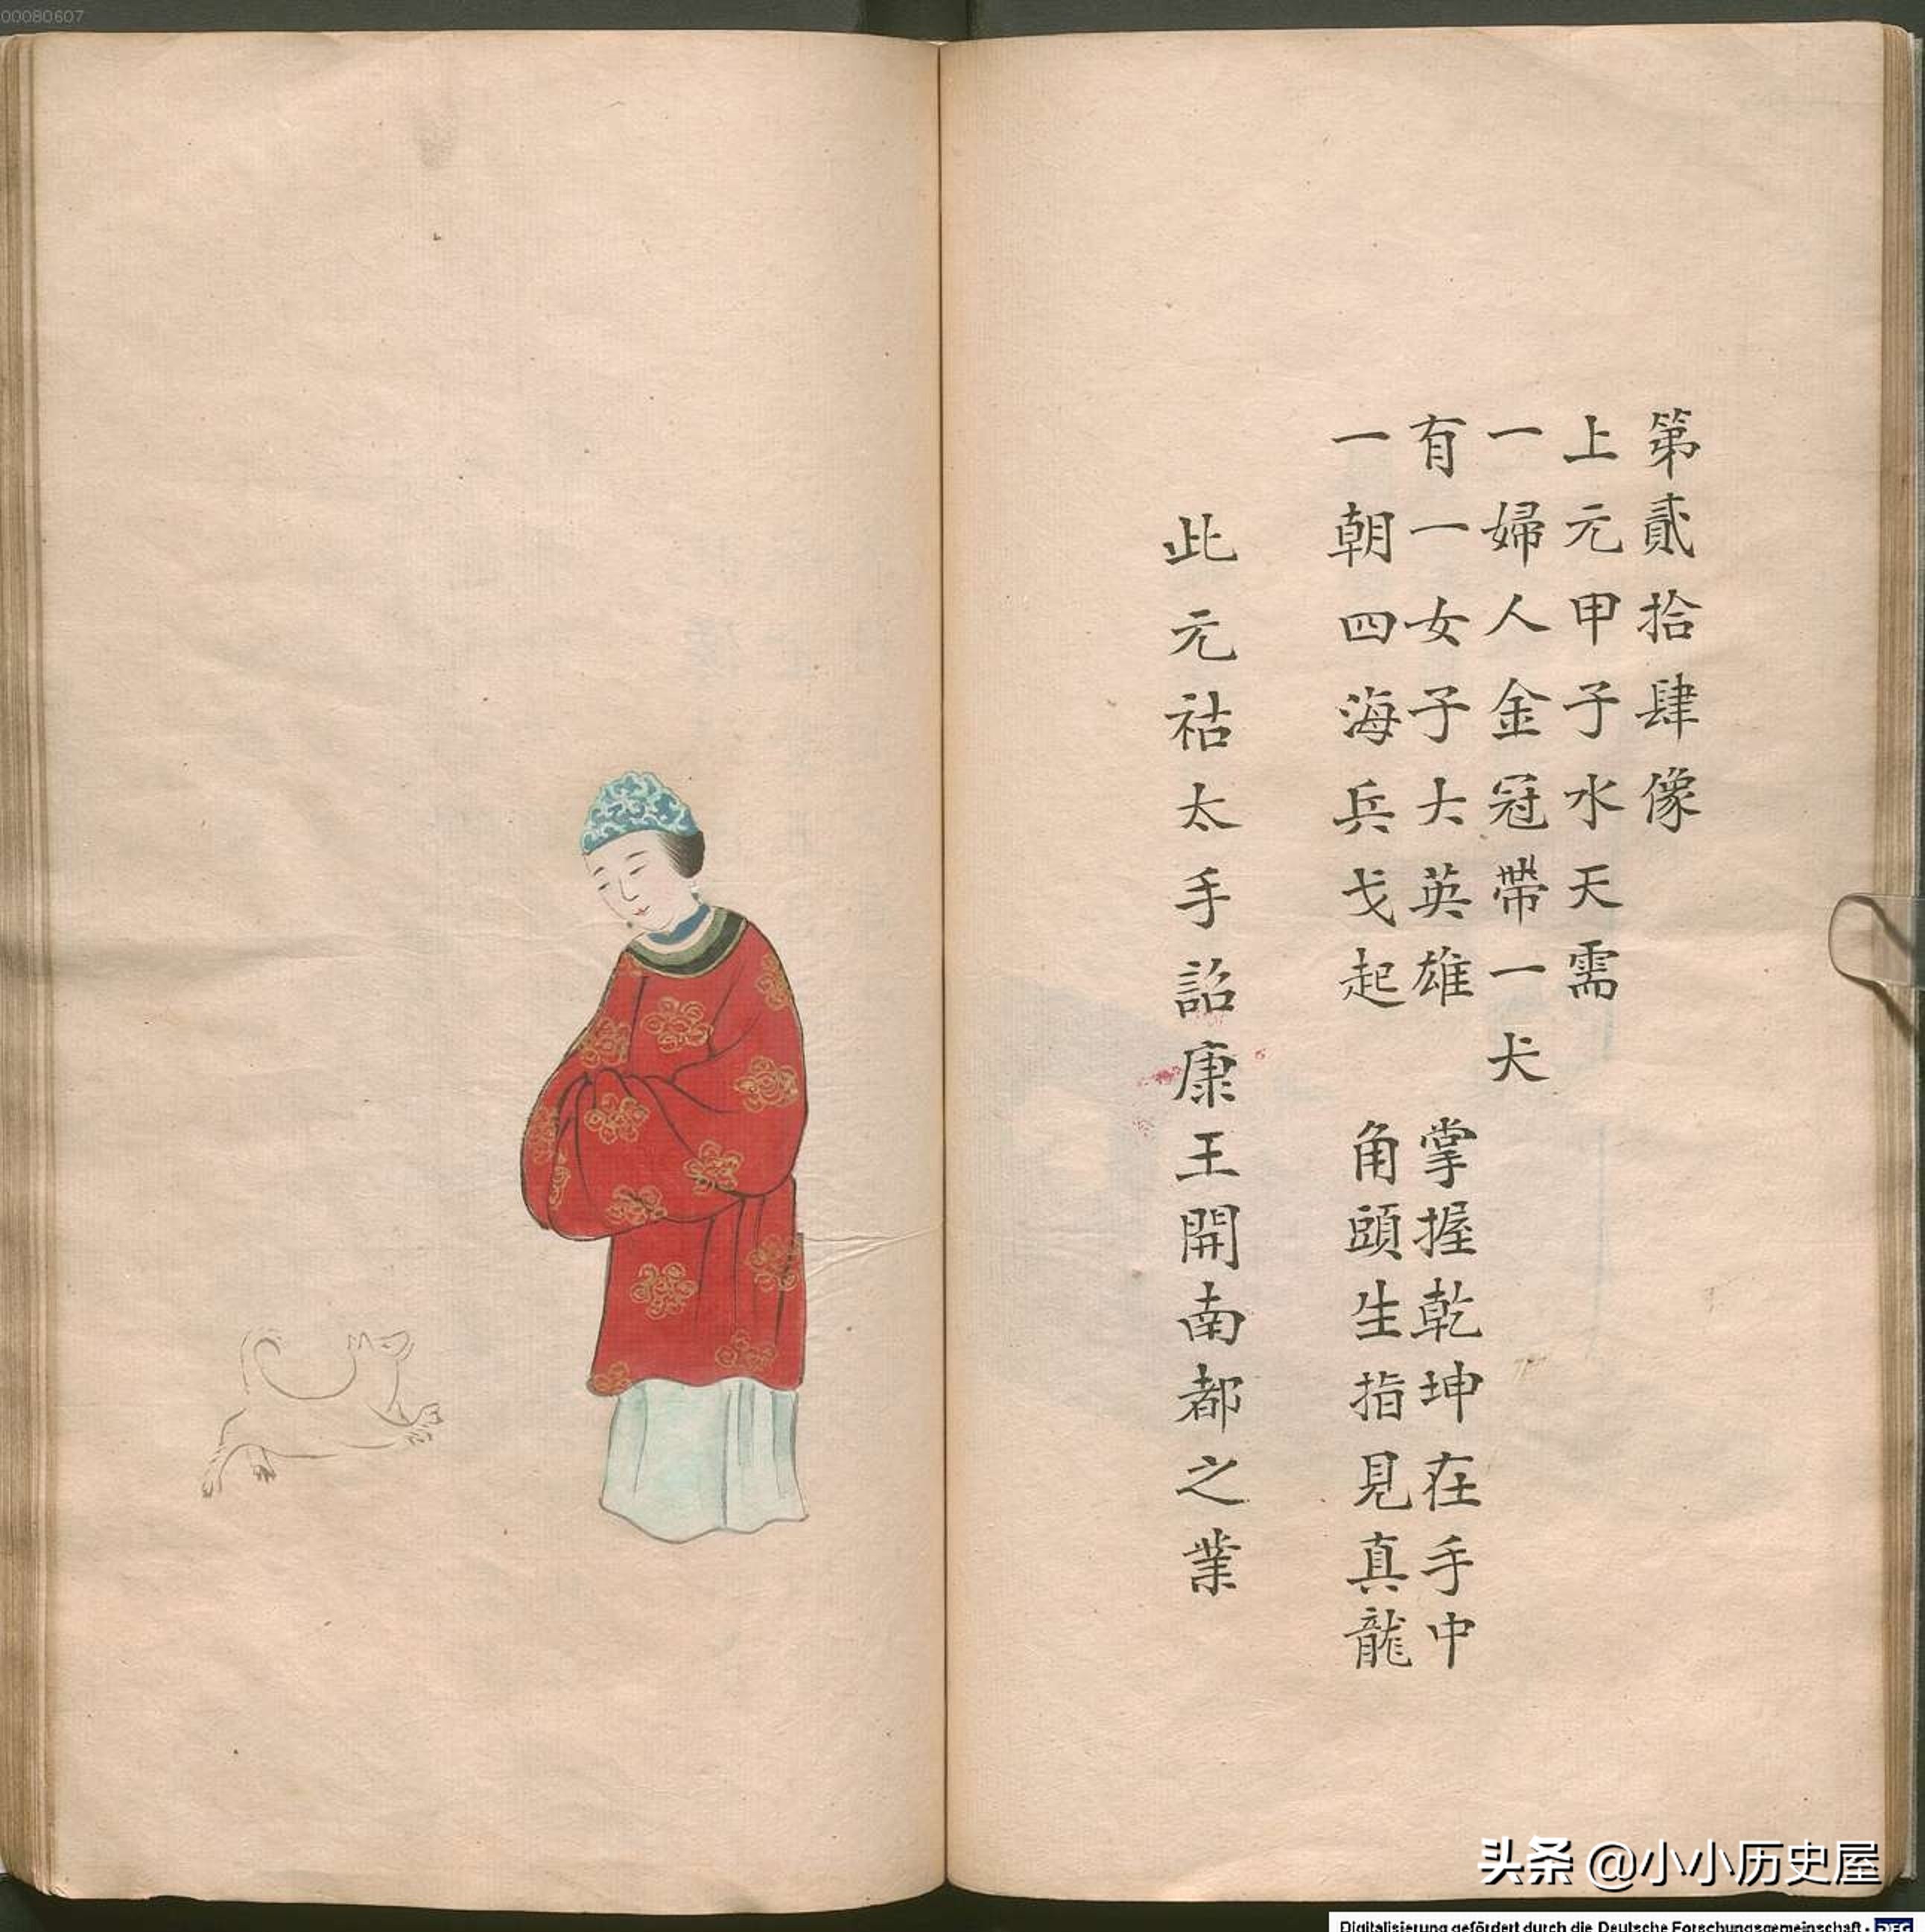 00080607
第貳拾肆像
上元甲子水天需
一婦人金冠帶一犬
有一女子大英雄　掌握乾坤在手中
一朝四海兵戈起　角頭生指見真龍
此元祜太手詔康王開南都之業
头条 @小小历史屋
Digitalisierung gefördert durch die Deutsche Forschungsgemeinschaft · DFG